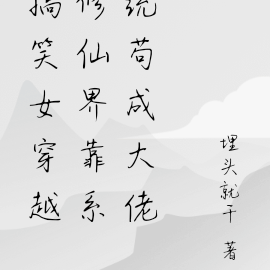 搞笑女穿越
修仙界靠系
统苟成大佬
埋头就干 著